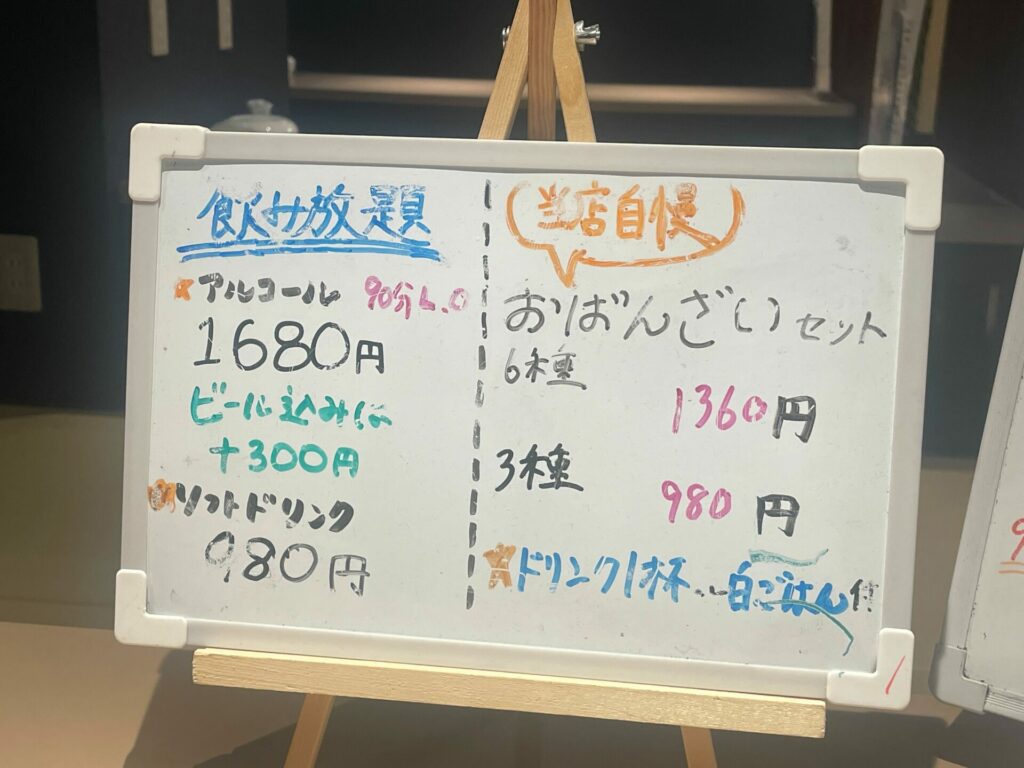 飲み放題
アルコール 90分L.O
1680円
ビール込みは
+300円
ソフトドリンク
980円
当店自慢
おばんざいセット
6種
1360円
3種
980円
ドリンク1杯 白ごはん付
9